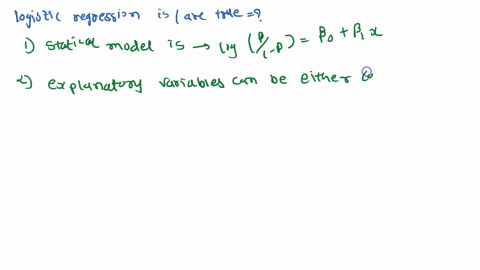 logistic regression is / are true =?
1) statical model is → log (P/1-P) = β₀ + β₁ x
2) explanatory variables can be either